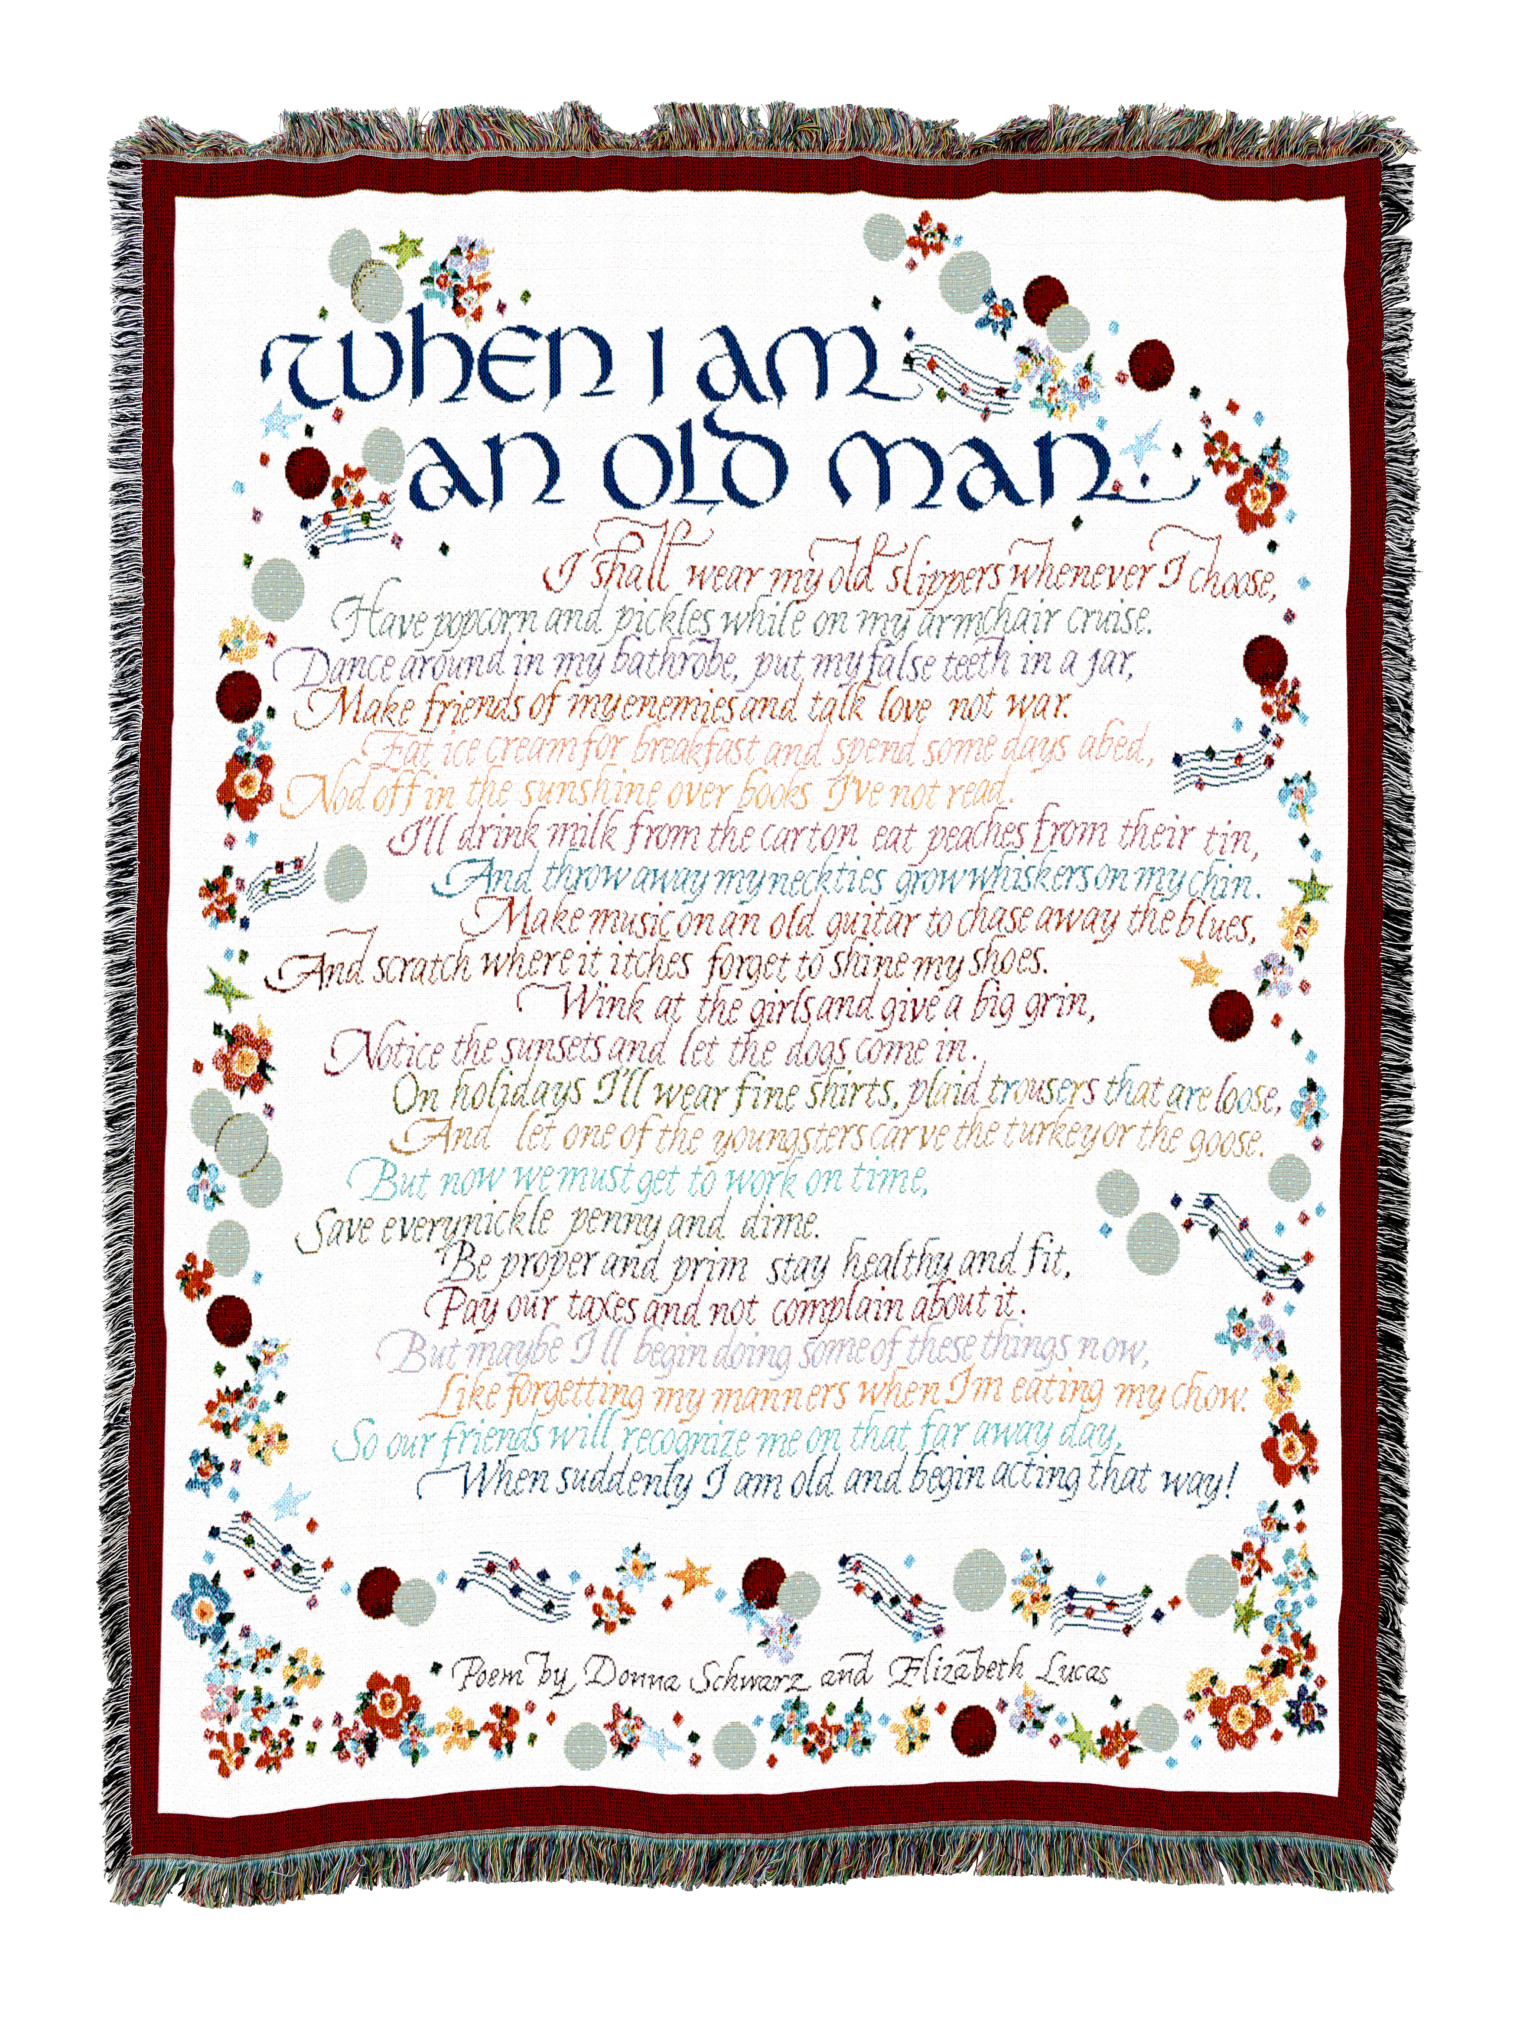 When I am
an old man
I shall wear my old slippers whenever I choose,
Have popcorn and pickles while on my armchair cruise.
Dance around in my bathrobe, put my false teeth in a jar,
Make friends of my enemies and talk love not war.
Eat ice cream for breakfast and spend some days abed,
Nod off in the sunshine over books I've not read.
I'll drink milk from the carton eat peaches from their tin,
And throw away my neckties grow whiskers on my chin.
Make music on an old guitar to chase away the blues,
And scratch where it itches forget to shine my shoes.
Wink at the girls and give a big grin,
Notice the sunsets and let the dogs come in.
On holidays I'll wear fine shirts, plaid trousers that are loose,
And let one of the youngsters carve the turkey or the goose.
But now we must get to work on time,
Save every nickle penny and dime.
Be proper and prim stay healthy and fit,
Pay our taxes and not complain about it.
But maybe I'll begin doing some of these things now,
Like forgetting my manners when I'm eating my chow.
So our friends will recognize me on that far away day,
When suddenly I am old and begin acting that way!
Poem by Donna Schwarz and Elizabeth Lucas